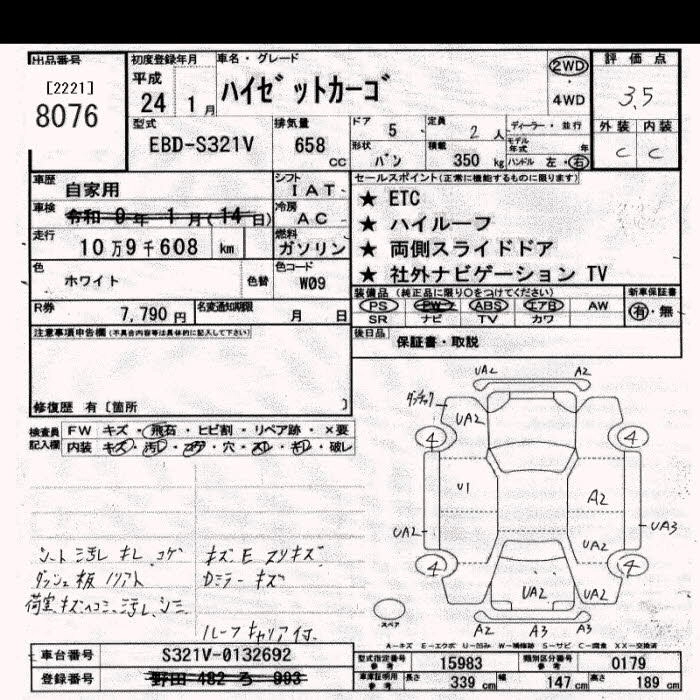 出品番号 初度登録年月 車名・グレード 2WD 評価点
[2221] 平成 ハイゼットカーゴ
8076 24 1月 4WD 3.5
型式 排気量 ドア 5 定員 2人 ディーラー・並行 外装 内装
EBD-S321V 658 cc 形状 バン 積載 350 kg モデル年式 年 ハンドル 左・右 C C
車歴 自家用 シフト IAT セールスポイント(正常に機能するものに限ります)
車検 令和 0年 1月(14日) 冷房 AC ★ ETC
走行 10万9千608 km 燃料 ガソリン ★ ハイルーフ
★ 両側スライドドア
色 ホワイト 色替 色コード W09 ★ 社外ナビゲーション TV
装備品(純正品に限り○をつけてください) 新車保証書
R券 7,790円 名変通知期限 月 日 PS PW ABS エアB AW 有・無
SR ナビ TV カワ
注意事項申告欄(不具合内容等は具体的に記入して下さい) 後日品 保証書・取説
修復歴 有〔箇所 〕
検査員記入欄 FW キズ・飛石・ヒビ割・リペア跡・×要
内装 キズ・汚レ・コゲ・穴・スレ・キレ・破レ
UA2 A2
UA2
4 4
U1 A2
UA2 UA3
UA2
4 4
UA2 UA2
スペア A2 A3 A3
シート汚レ キレ コゲ キズ E スリキズ
ダッシュ板 ノリアト Dミラー キズ
荷室キズヘコミ、汚レ、シミ
ルーフキャリア付.
A－キズ E－エクボ U－凹み W－補修跡 S－サビ C－腐食 XX－交換済
車台番号 S321V-0132692 型式指定番号 参考 15983 類別区分番号 参考 0179
登録番号 野田 482 ろ 993 車庫証明用 参考 長さ 339 cm 幅 147 cm 高さ 189 cm